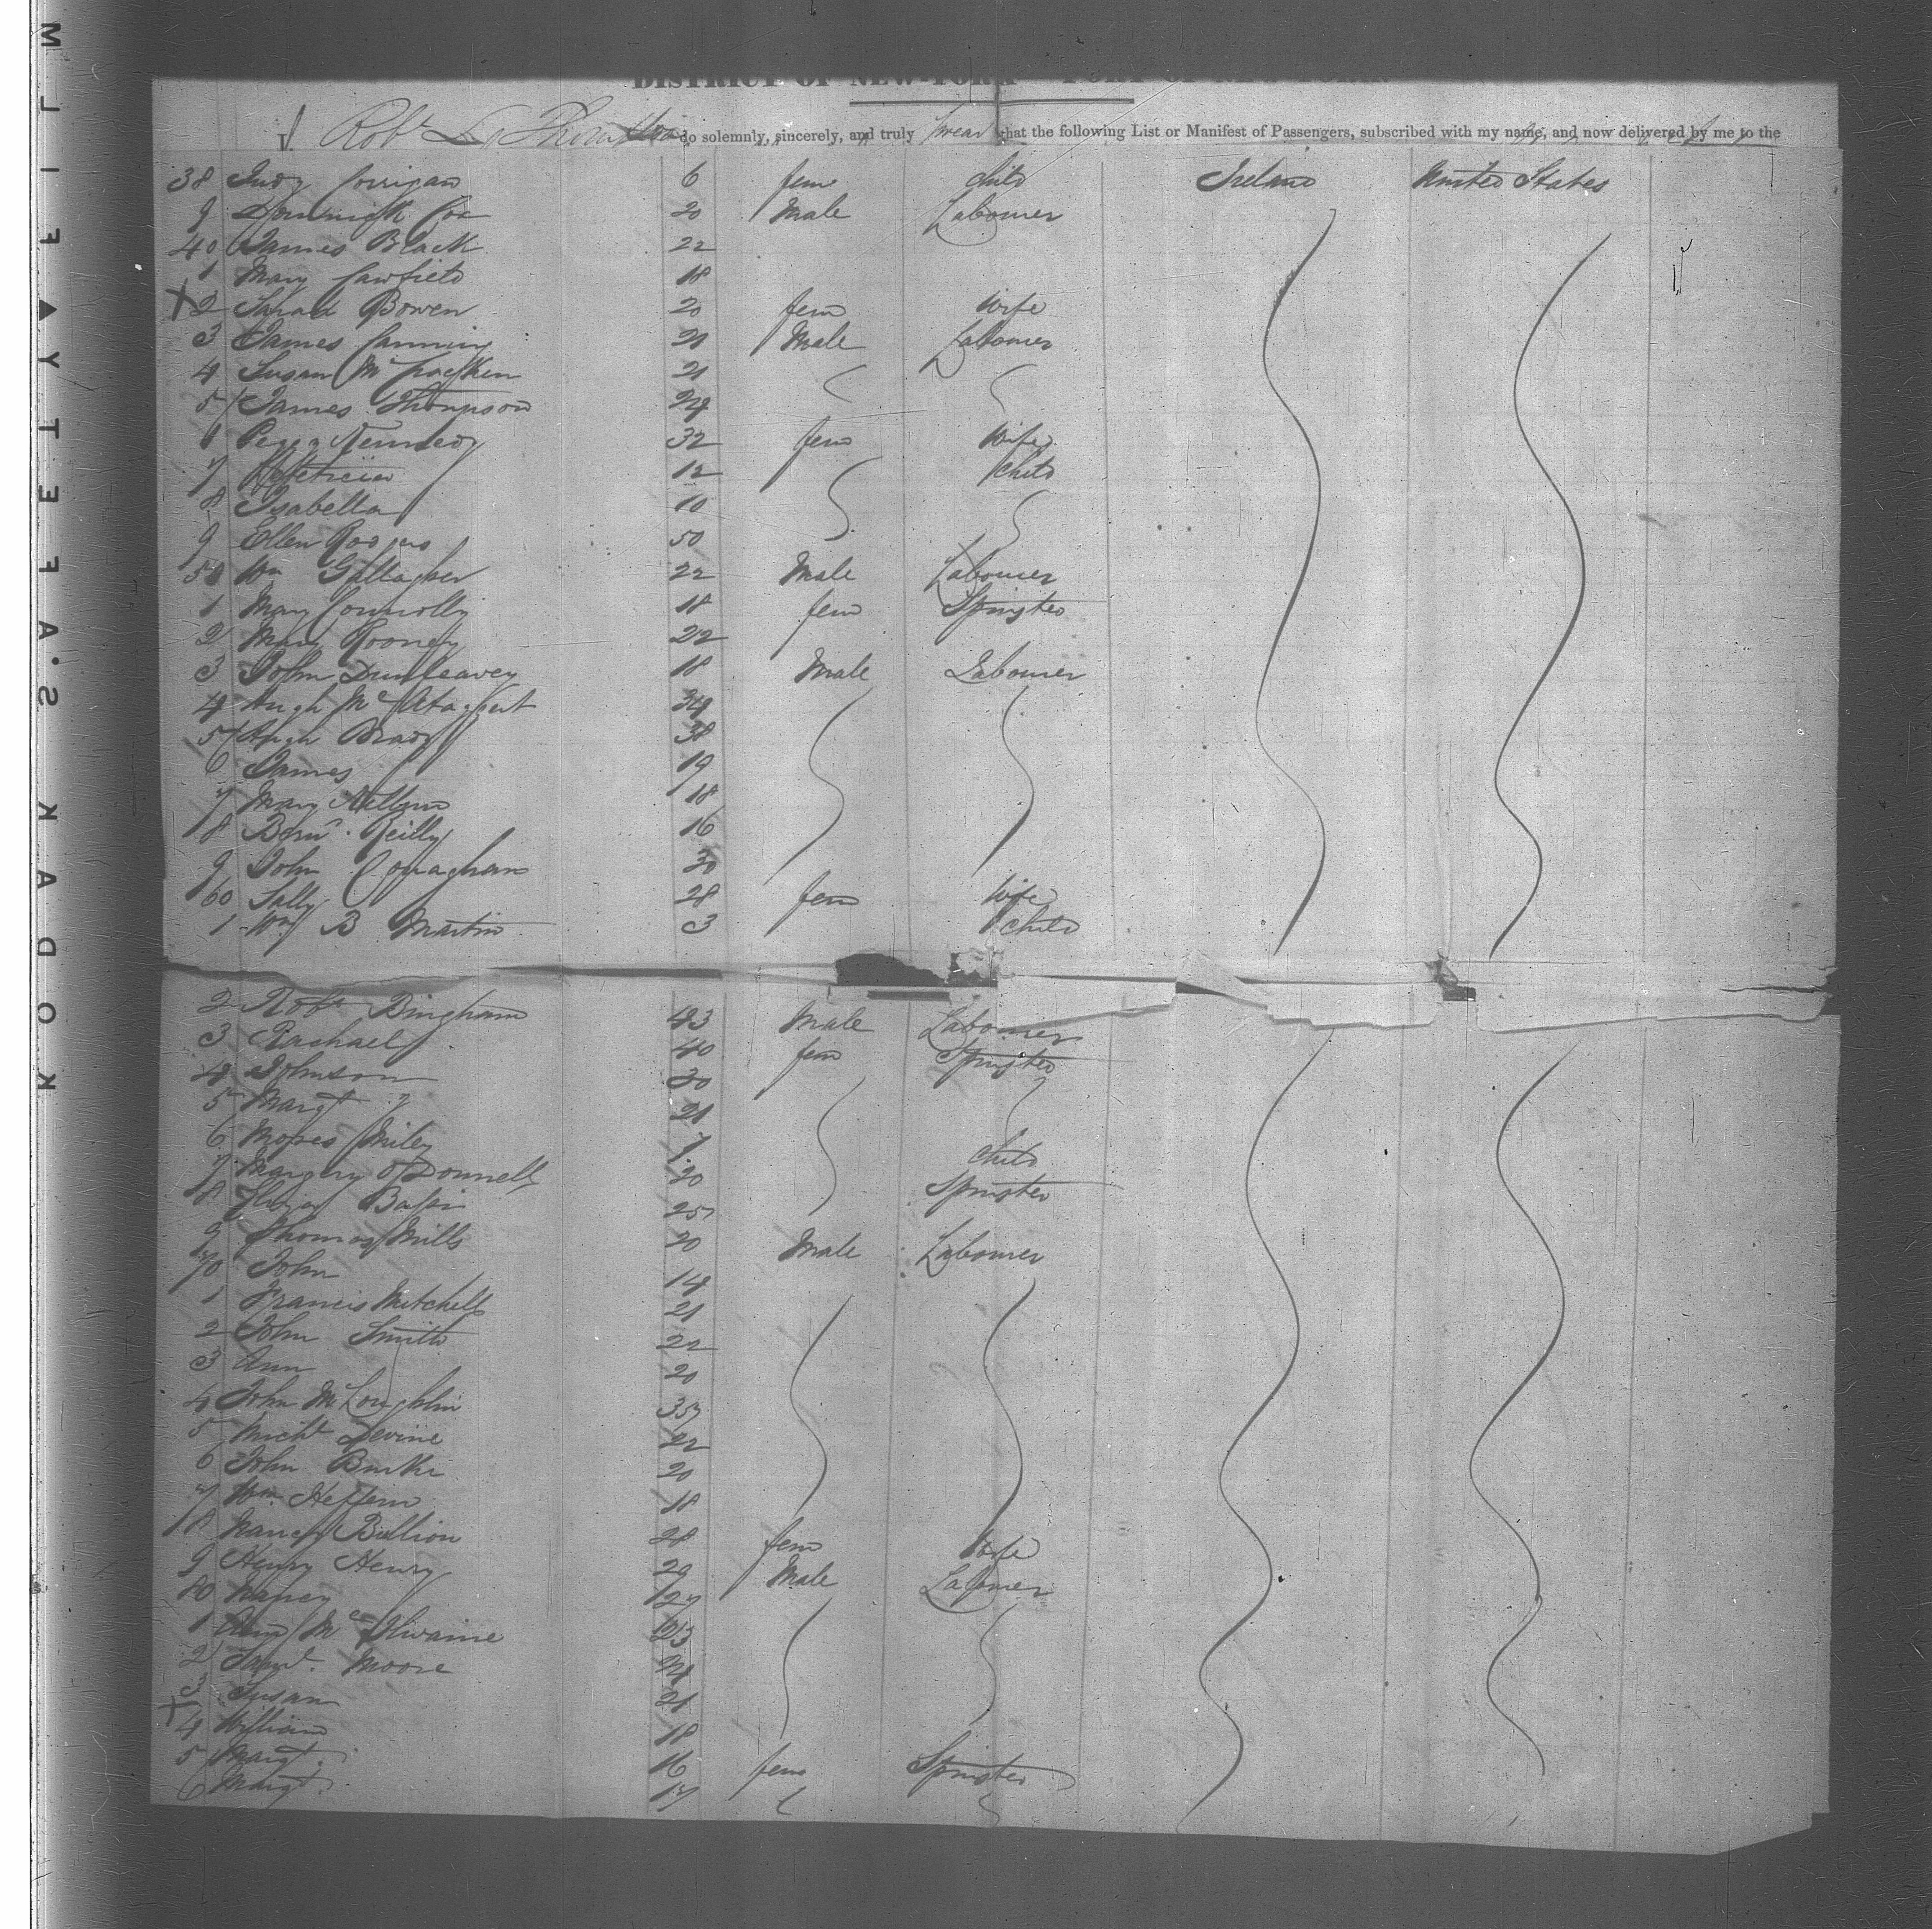 DISTRICT OF NEW-YORK PORT OF NEW YORK
I, Robt do solemnly, sincerely, and truly swear that the following List or Manifest of Passengers, subscribed with my name, and now delivered by me to the
38 Judy Corrigan 6 fem child Ireland United States
9 Dominick Coe 20 Male Labourer
40 James Black 22
1 Mary Cawfield 18
X 2 Sarah Bowen 20 fem Wife
3 James Canning 21 Male Labourer
4 Susan McCracken 21
5 James Thompson 24
Kennedy 32 fem Wife
7 12 child
8 Isabella 10
9 Ellen Rodgers 50
50 Wm Gallagher 22 Male Labourer
1 Mary Connolly 18 fem Spinster
2 Mary Rooney 22
3 John Dunleavey 18 Male Labourer
4 Hugh Mc 34
5 Hugh Brady 38
6 James 19
7 Mary 18
8 Bernd. Reilly 16
9 John Conaghan 30
60 Sally 28 fem Wife
1 Wm B Martin 3 child
2 Robt Bingham 43 Male Labourer
3 Rachael 40 fem Spinster
4 Johnson 30
5 Margt " 21
6 Moses Miley 7 child
7 Margery O'Donnell 20 Spinster
8 25
9 Thomas Mills 20 Male Labourer
70 John 14
1 Francis Mitchell 21
2 John Smith 22
3 Ann 20
4 John McLoughlin 35
5 Michl Devine 22
6 John Burke 20
7 Wm Heffern 18
8 Nancy Bullion 28 fem Wife
9 Henry Henry 29 Male Labourer
80 Nancy 27
1 Ann McIlwaine 23
2 Saml. Moore 24
3 Susan 21
X 4 William 18
5 Margt. 16 fem Spinster
6 Margt. 17
KODAK S.A.FETY ▲ FILM